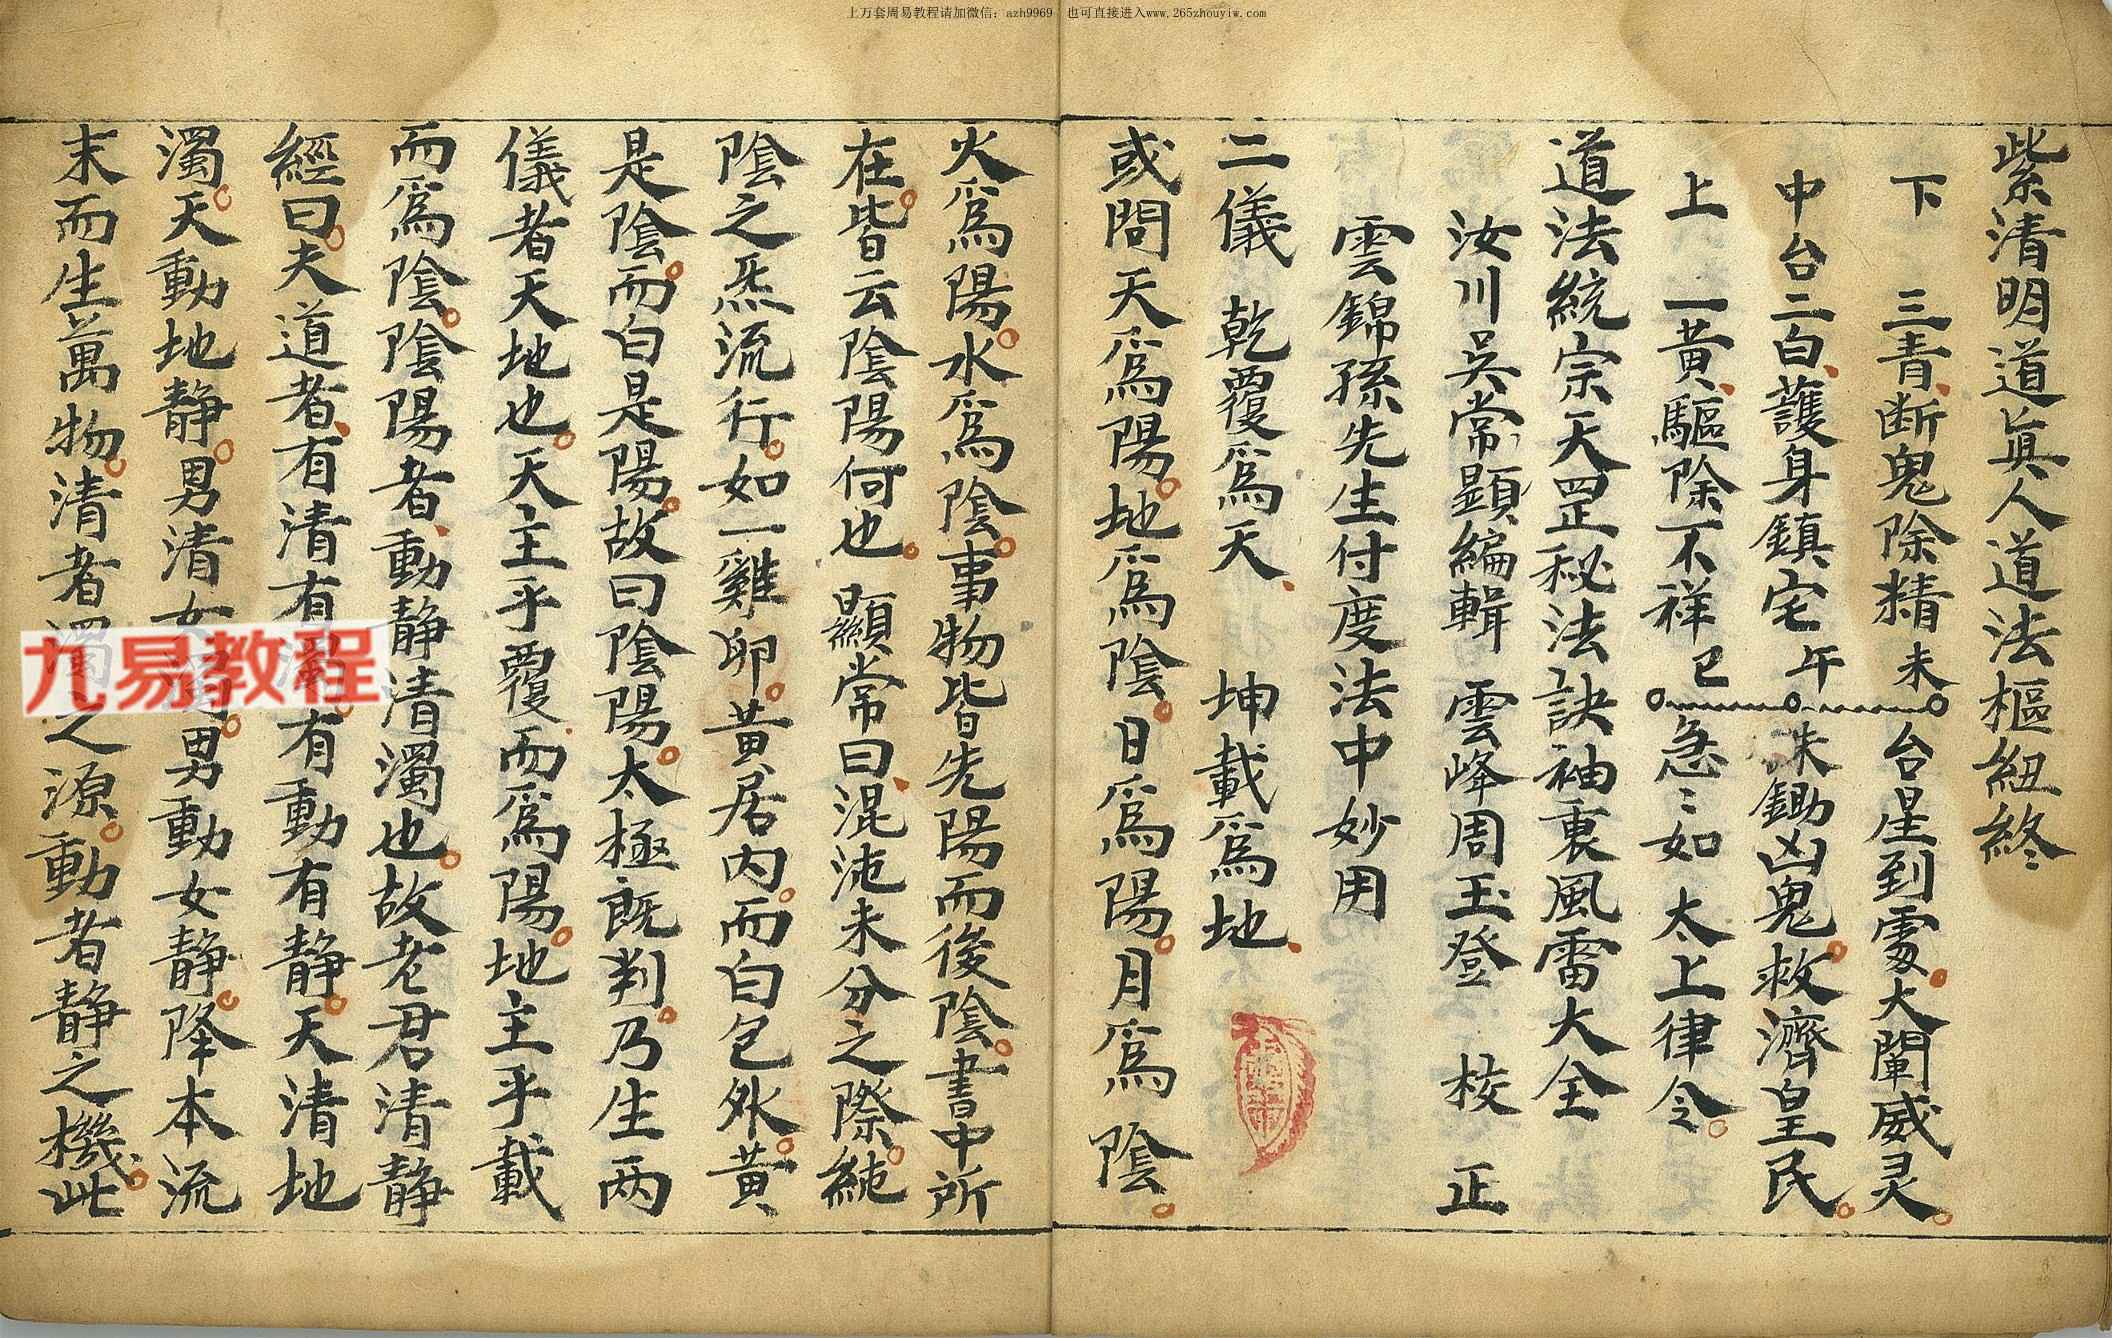 上万套周易教程请加微信：azh9969 也可直接进入www.265zhouyiw.com
紫清明道真人道法樞紐終
下 三青、断鬼除精未 台星到處。大闡威灵。
中台二白、護身鎮宅午 朱鋤凶鬼。救濟皇民。
上 一黃、驅除不祥巳 急〻如太上律令。
道法統宗天罡秘法訣袖裏風雷大全
汝川吳常顕編輯 雲峰周玉登 校正
雲錦孫先生付度法中妙用
二儀 乾覆爲天、 坤載爲地、
或問天爲陽。地爲陰。日爲陽。月爲陰。
火爲陽。水爲陰。事物皆先陽而後陰。書中所
在。皆云陰陽何也。 顯常曰、混沌未分之際。純
陰之炁流行。如一雞卵。黃居内。而白包外。黃
是陰。而白是陽。故曰陰陽。太極既判。乃生两
儀者天地也。天主乎覆、而爲陽。地主乎載
而爲陰。陰陽者、動静清濁也。故老君清静
經曰。夫道者、有清有濁。有動有静。天清地
濁。天動地静。男清女濁。男動女静。降本流
末而生萬物。清者濁之源。動者静之機。此
九易教程